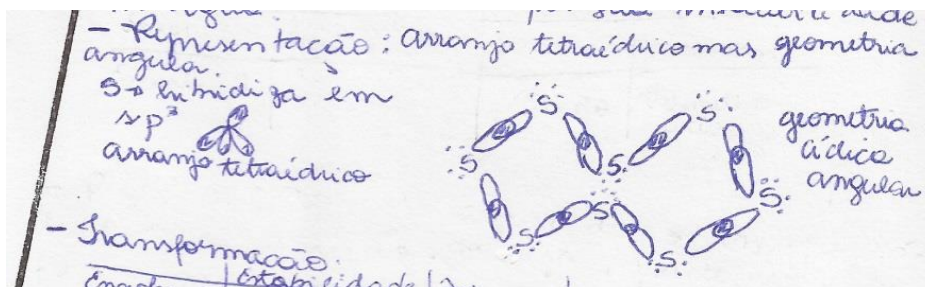 - Representação: arranjo tetraédrico mas geometria
angular.
S → hibridiza em
sp³
arranjo tetraédrico
S S
S S S
S S S
geometria
cíclica
angular
- Transformação:
Estabilidade